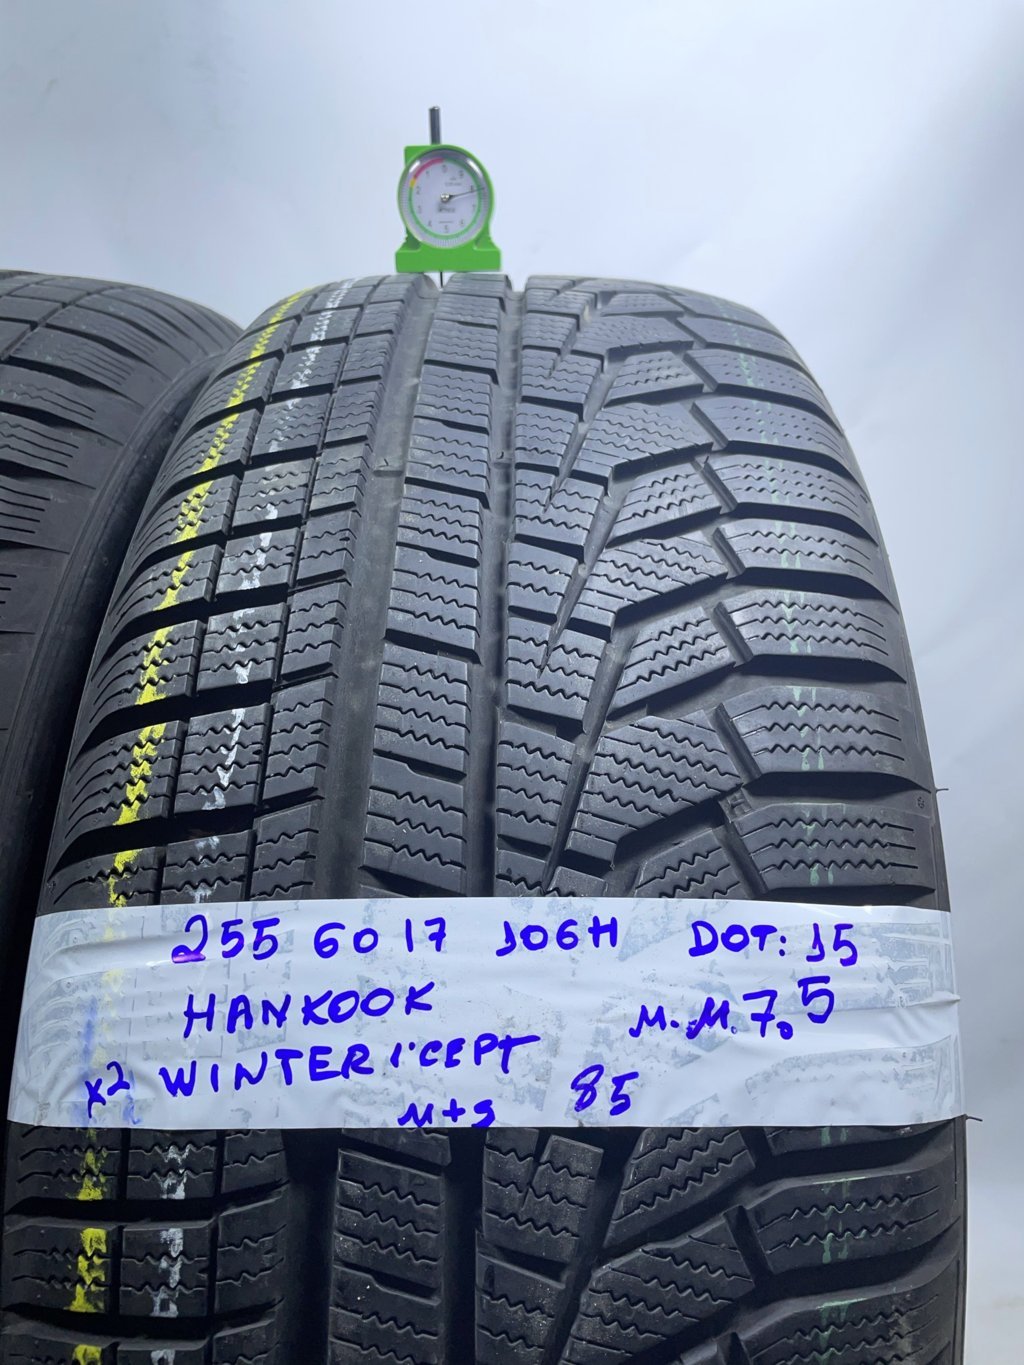 255 60 17 106H DOT: 15
HANKOOK M.M. 7.5
x2 WINTER i'CEPT 85
M+S